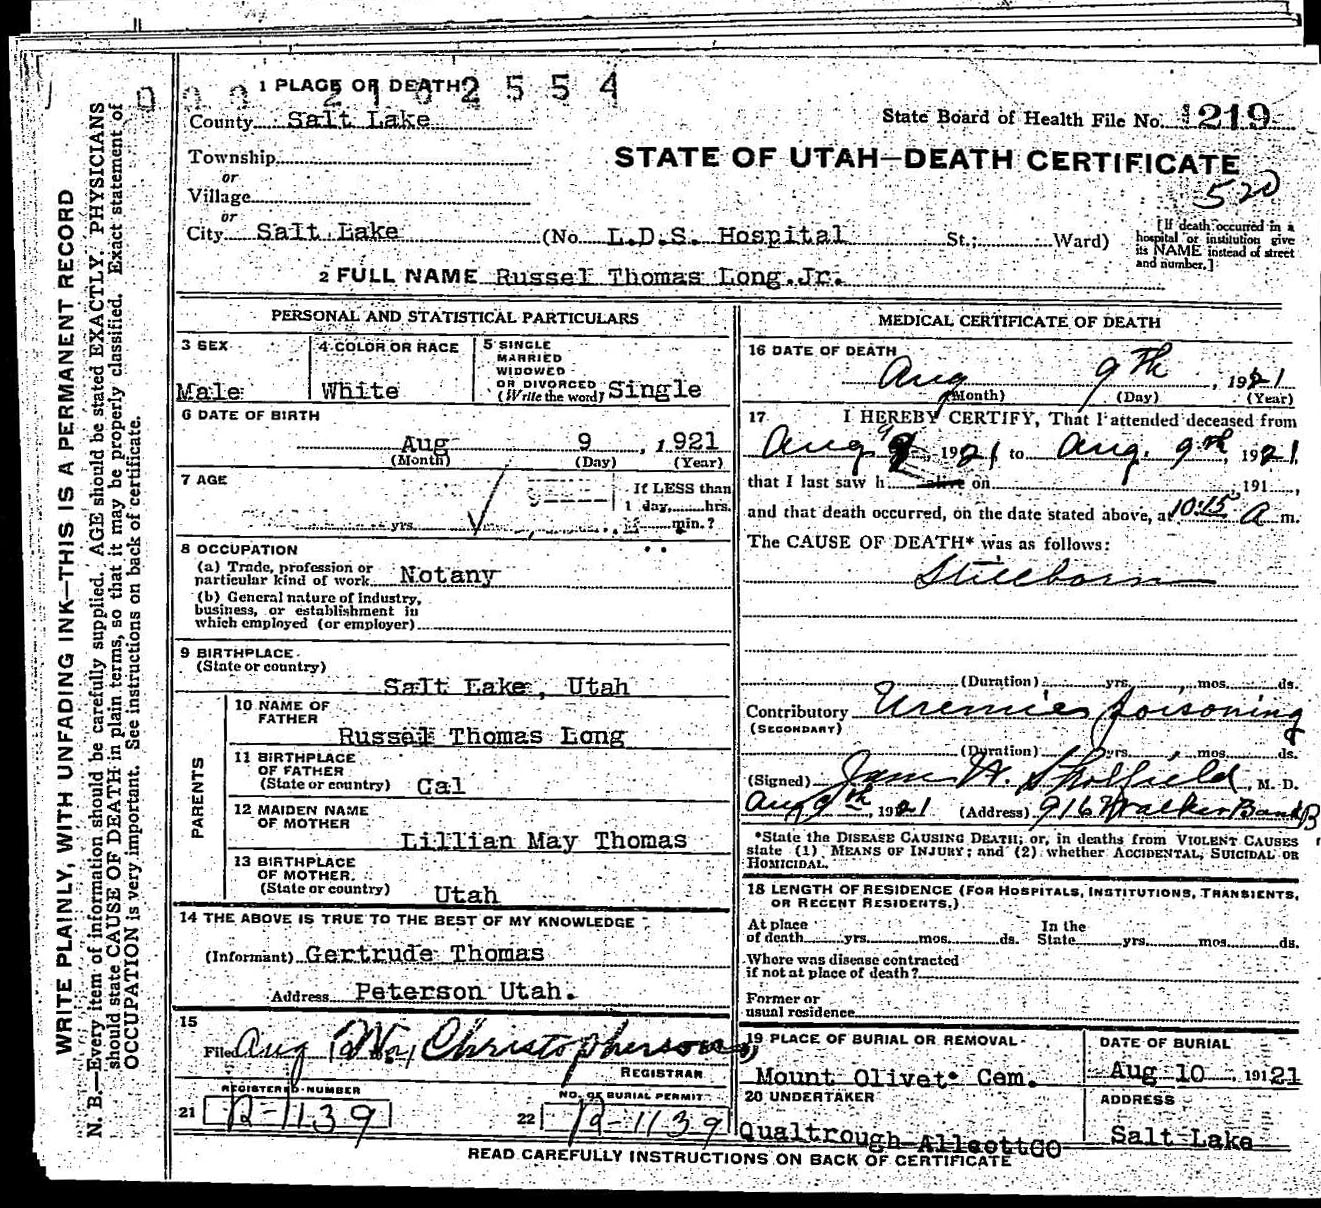 1 PLACE OF DEATH
2102554
County Salt Lake
State Board of Health File No. 1219
Township
STATE OF UTAH—DEATH CERTIFICATE
or
520
Village
or
City Salt Lake (No. L.D.S. Hospital St.; Ward)
[If death occurred in a hospital or institution give its NAME instead of street and number.]
2 FULL NAME Russel Thomas Long.Jr.
PERSONAL AND STATISTICAL PARTICULARS
3 SEX
Male
4 COLOR OR RACE
White
5 SINGLE
MARRIED
WIDOWED
OR DIVORCED
(Write the word) Single
6 DATE OF BIRTH
Aug 9, 1921
(Month) (Day) (Year)
7 AGE
If LESS than
1 day, hrs.
yrs. min.?
8 OCCUPATION
(a) Trade, profession or
particular kind of work Notany
(b) General nature of industry,
business, or establishment in
which employed (or employer)
9 BIRTHPLACE
(State or country)
Salt Lake, Utah
PARENTS
10 NAME OF
FATHER
Russel Thomas Long
11 BIRTHPLACE
OF FATHER
(State or country) Cal
12 MAIDEN NAME
OF MOTHER
Lillian May Thomas
13 BIRTHPLACE
OF MOTHER.
(State or country) Utah
14 THE ABOVE IS TRUE TO THE BEST OF MY KNOWLEDGE
(Informant) Gertrude Thomas
Address Peterson Utah.
15
Filed Aug Christopherson,
REGISTRAR
REGISTERED NUMBER
21 R-1139
NO. OF BURIAL PERMIT
22 R-1139
MEDICAL CERTIFICATE OF DEATH
16 DATE OF DEATH
Aug 9th, 1921
(Month) (Day) (Year)
17 I HEREBY CERTIFY, That I attended deceased from
Aug 9, 1921 to Aug. 9th, 1921,
that I last saw h alive on 191,
and that death occurred, on the date stated above, at 10:15 A m.
The CAUSE OF DEATH* was as follows:
Stillborn
(Duration) yrs. mos. ds.
Contributory Uremic poisoning
(SECONDARY)
(Duration) yrs. mos. ds.
(Signed) M. D.
Aug 9th, 1921 (Address) 916 Walker Bank B
*State the DISEASE CAUSING DEATH; or, in deaths from VIOLENT CAUSES
state (1) MEANS OF INJURY; and (2) whether ACCIDENTAL, SUICIDAL OR
HOMICIDAL.
18 LENGTH OF RESIDENCE (FOR HOSPITALS, INSTITUTIONS, TRANSIENTS,
OR RECENT RESIDENTS.)
At place In the
of death yrs. mos. ds. State yrs. mos. ds.
Where was disease contracted
if not at place of death?
Former or
usual residence
19 PLACE OF BURIAL OR REMOVAL
Mount Olivet Cem.
DATE OF BURIAL
Aug 10, 19121
20 UNDERTAKER
Qualtrough-AllcottCO
ADDRESS
Salt Lake
READ CAREFULLY INSTRUCTIONS ON BACK OF CERTIFICATE
WRITE PLAINLY, WITH UNFADING INK—THIS IS A PERMANENT RECORD
N. B.—Every item of information should be carefully supplied. AGE should be stated EXACTLY. PHYSICIANS
should state CAUSE OF DEATH in plain terms, so that it may be properly classified. Exact statement of
OCCUPATION is very important. See instructions on back of certificate.